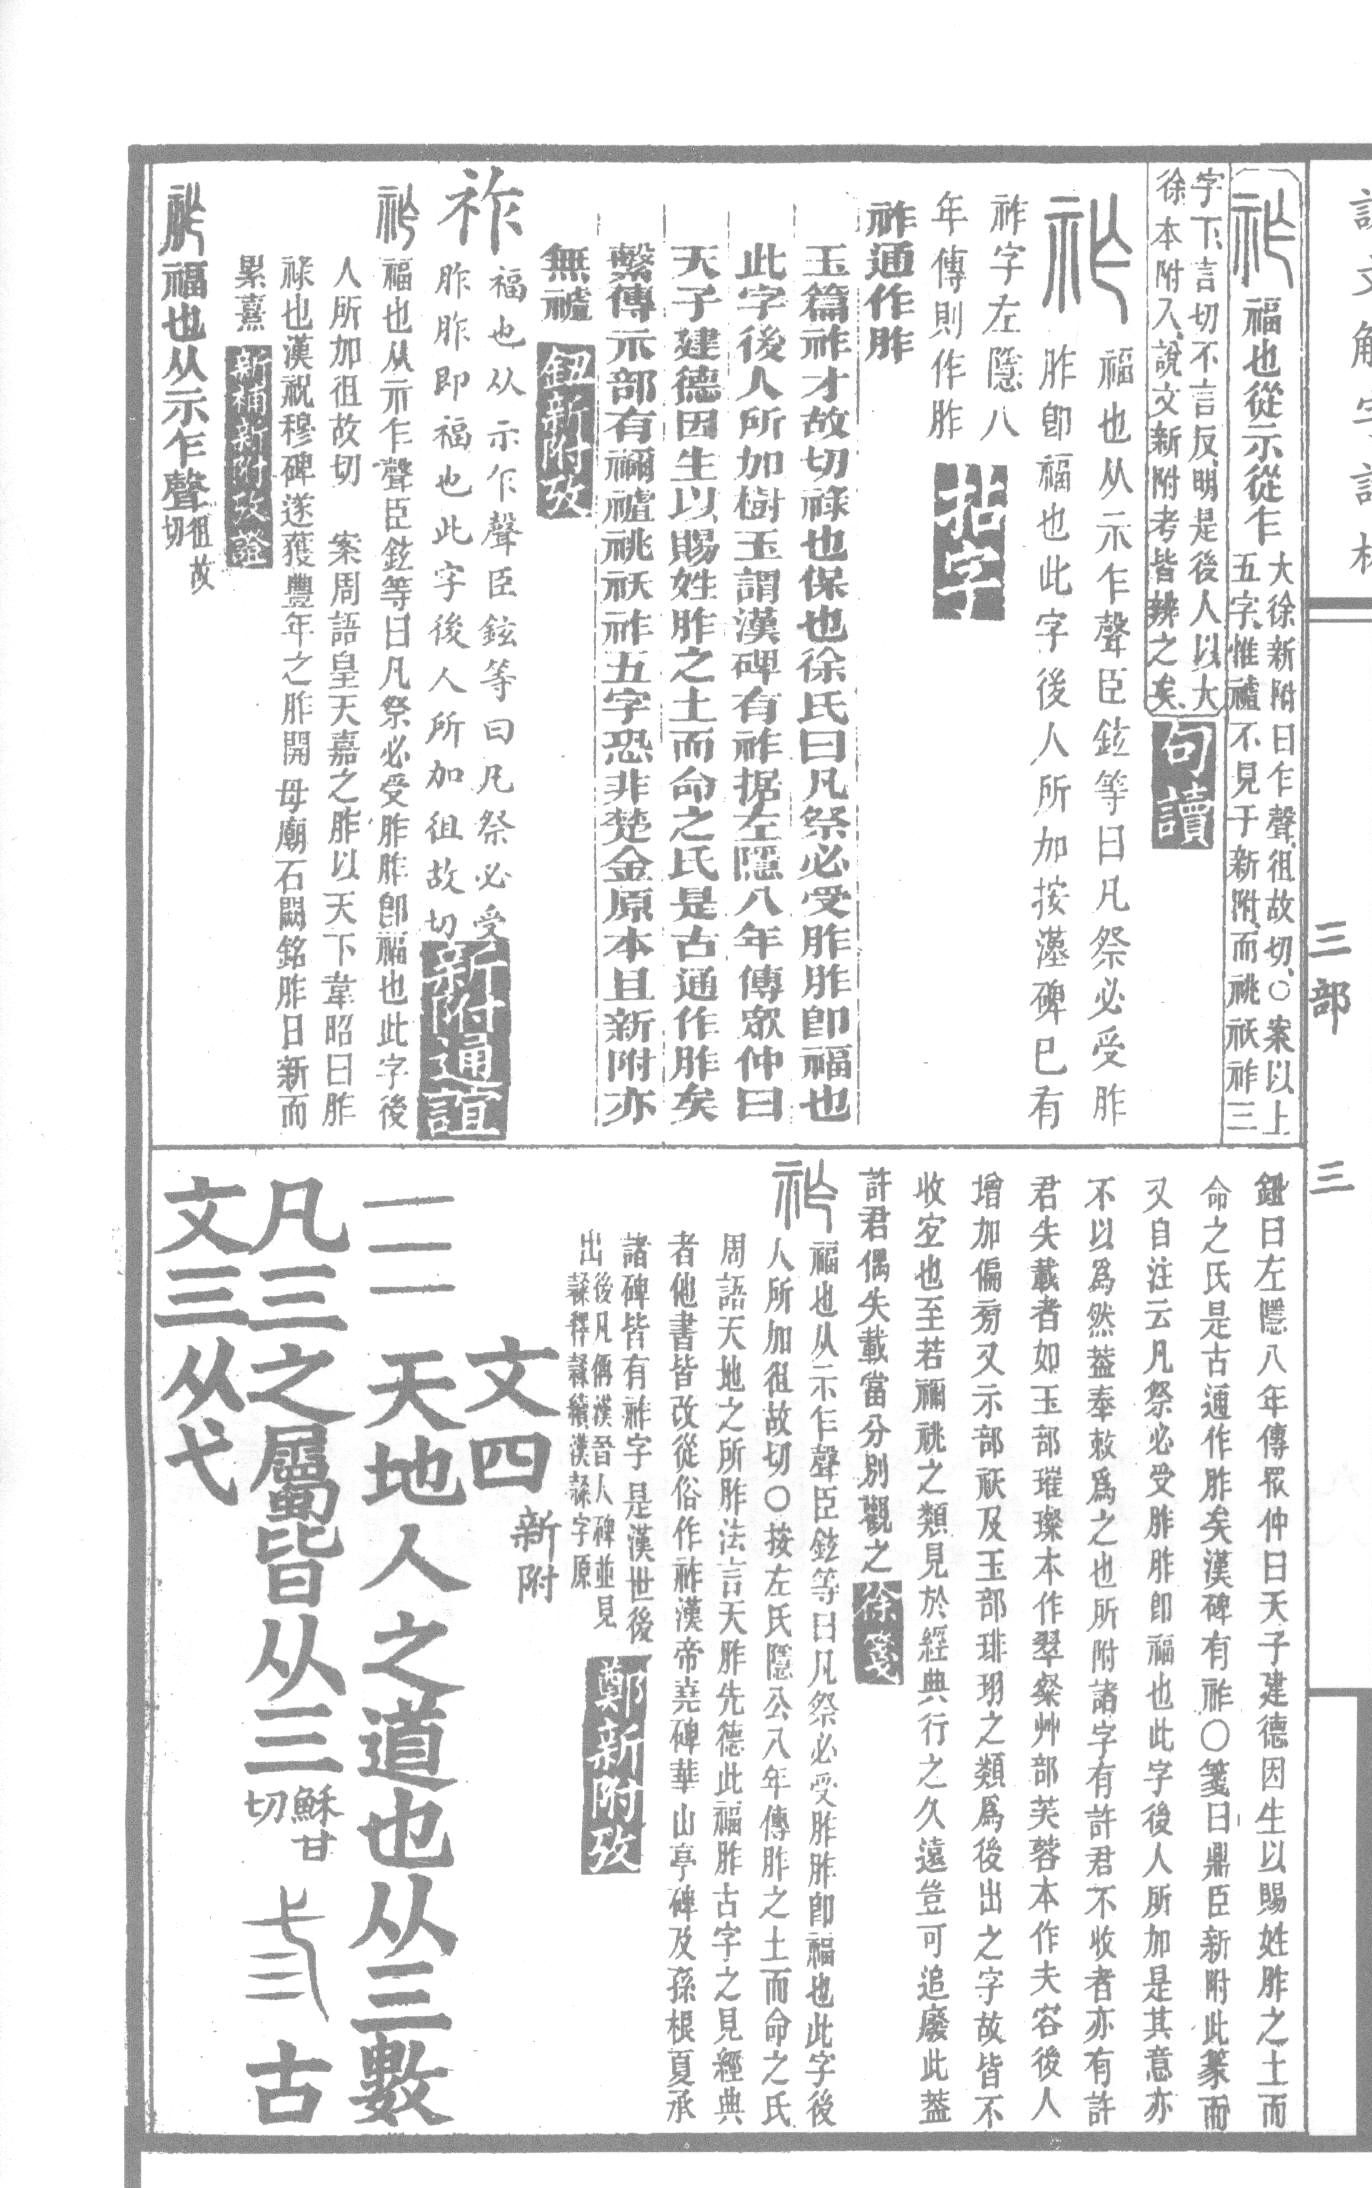 三部
三
福也從示從乍
大徐新附曰乍聲徂故切○案以上
五字惟禮不見于新附而祧祆祚三
字下言切不言反明是後人以大
徐本附入說文新附考皆辨之矣
句讀
福也从示乍聲臣鉉等曰凡祭必受胙
胙卽福也此字後人所加按漢碑已有
祚字左隱八
年傳則作胙
拈字
祚通作胙
玉篇祚才故切祿也保也徐氏曰凡祭必受胙胙卽福也
此字後人所加樹玉謂漢碑有祚据左隱八年傳眾仲曰
天子建德因生以賜姓胙之土而命之氏是古通作胙矣
繫傳示部有禰𥜗祧祆祚五字恐非楚金原本且新附亦
無𥜗
鈕新附攷
祚
福也从示乍聲臣鉉等曰凡祭必受
胙胙即福也此字後人所加徂故切
新附通誼
福也从示乍聲臣鉉等曰凡祭必受胙胙卽福也此字後
人所加徂故切 案周語皇天嘉之胙以天下韋昭曰胙
祿也漢祝穆碑遂獲豐年之胙開母廟石闕銘胙日新而
累熹
新補新附攷證
福也从示乍聲
徂故
切
鈕曰左隱八年傳眾仲曰天子建德因生以賜姓胙之土而
命之氏是古通作胙矣漢碑有祚○箋曰鼎臣新附此篆而
又自注云凡祭必受胙胙卽福也此字後人所加是其意亦
不以爲然蓋奉敕爲之也所附諸字有許君不收者亦有許
君失載者如玉部璀璨本作翠粲艸部芙蓉本作夫容後人
增加偏旁又示部祆及玉部琲珝之類爲後出之字故皆不
收宜也至若禰祧之類見於經典行之久遠豈可追廢此蓋
許君偶失載當分別觀之
徐箋
福也从示乍聲臣鉉等曰凡祭必受胙胙卽福也此字後
人所加徂故切○按左氏隱公八年傳胙之土而命之氏
周語天地之所胙法言天胙先德此福胙古字之見經典
者他書皆改從俗作祚漢帝堯碑華山亭碑及孫根夏承
諸碑皆有祚字是漢世後
出
後凡偁漢晉人碑並見
隸釋隸續漢隸字原
鄭新附攷
文四
新附
三 天地人之道也从三數
凡三之屬皆从三
穌甘
切
弎 古
文三从弋